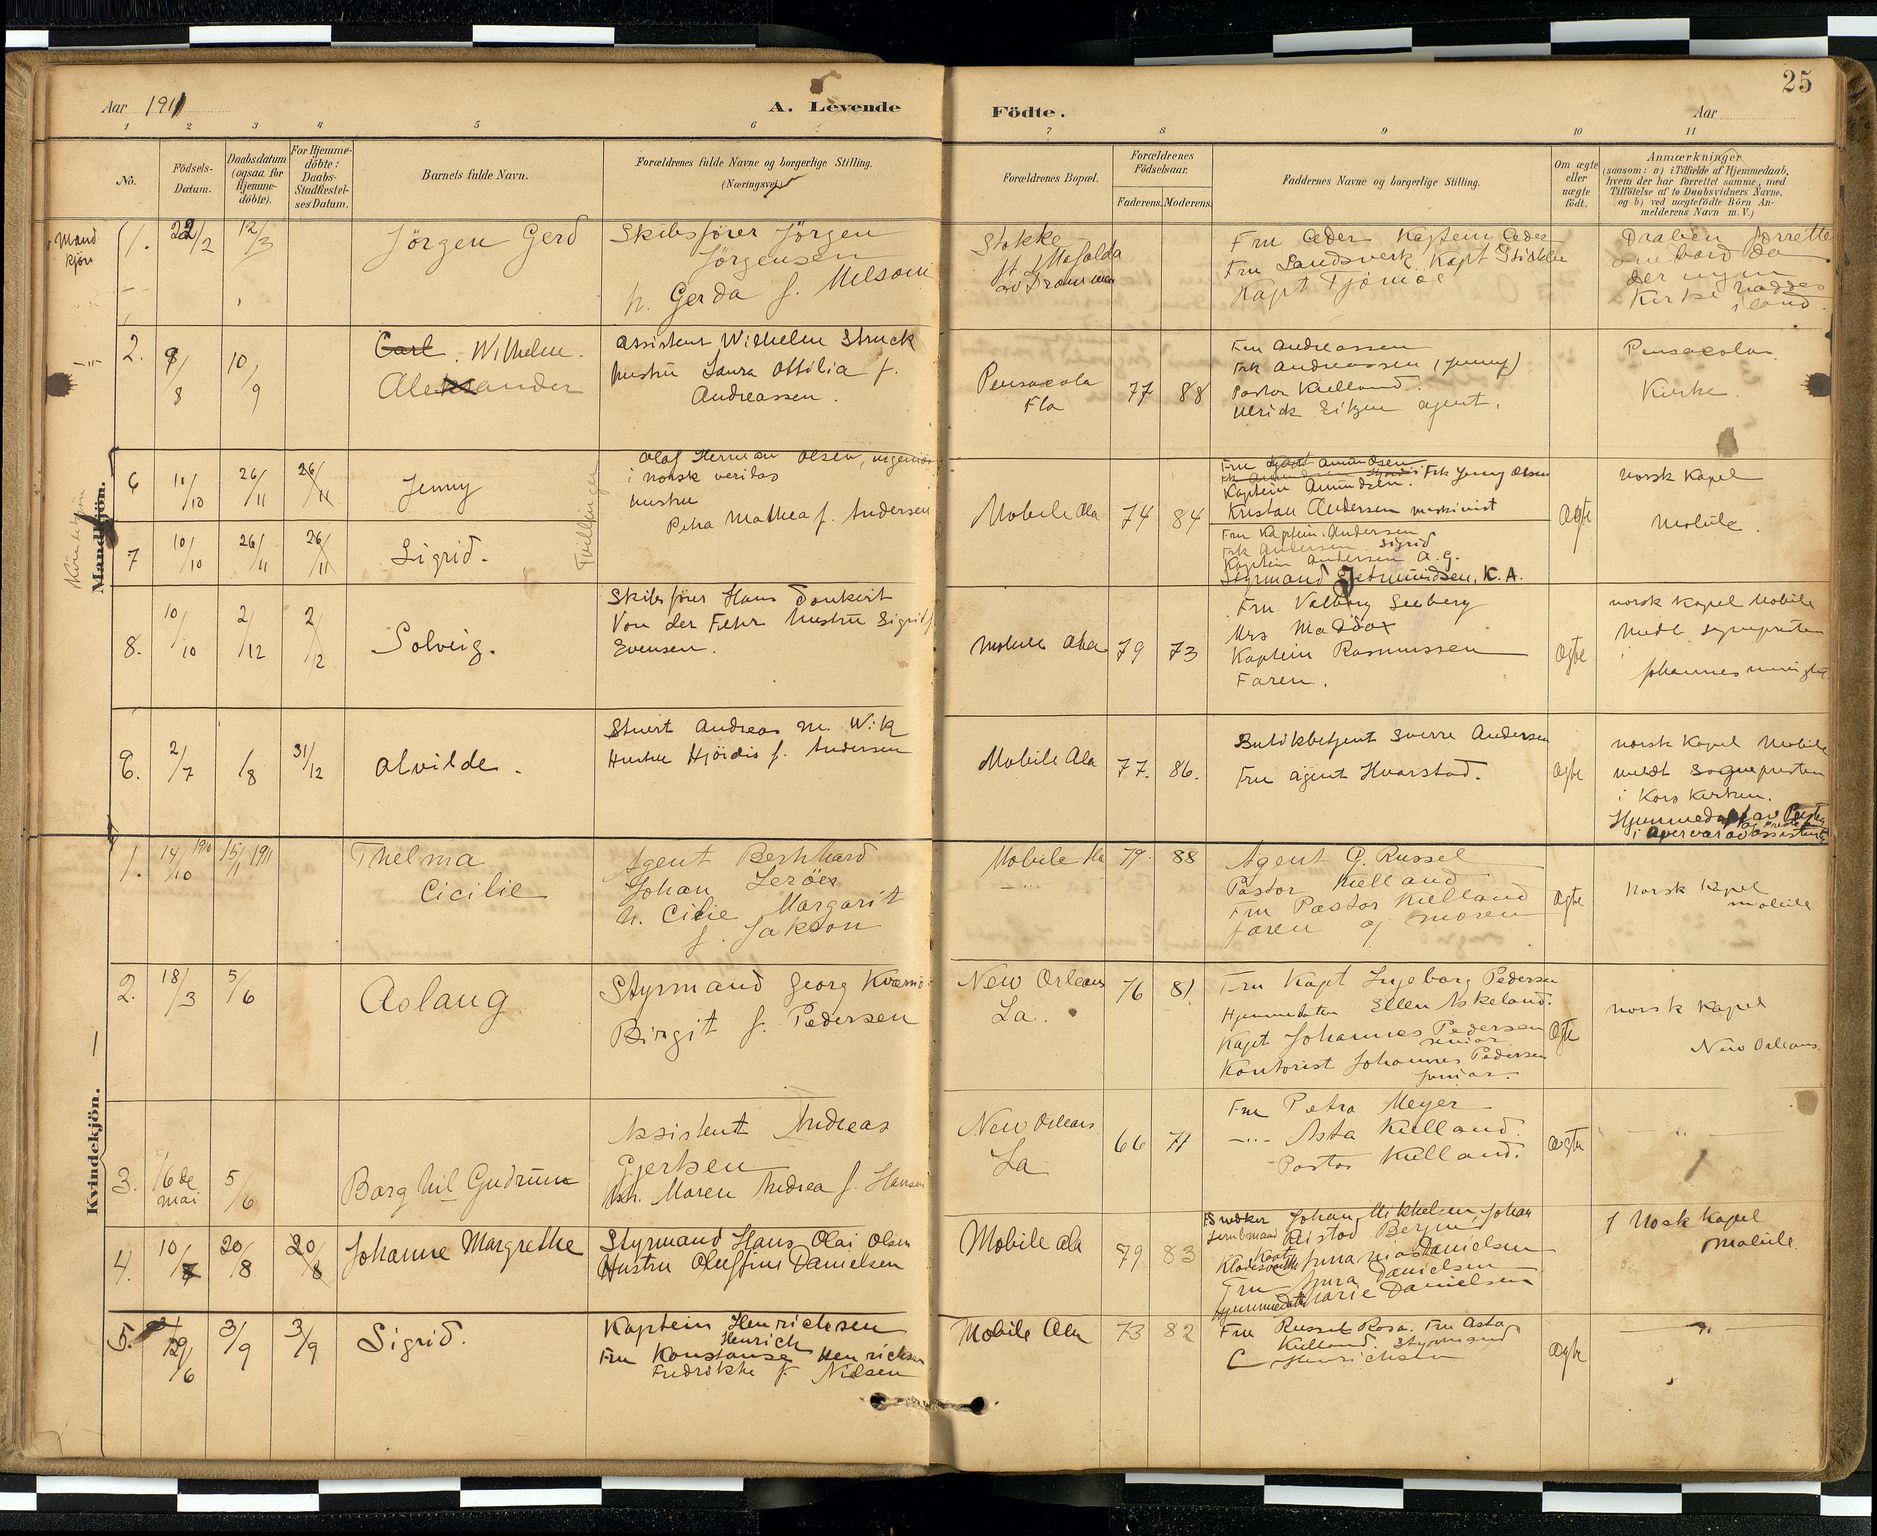 25
Aar 1911
A. Levende
Födte.
Aar
1 2 3 4 5 6 7 8 9 10 11
No.
Födsels-
Datum.
Daabsdatum
(ogsaa for
Hjemme-
döbte).
For Hjemme-
döbte:
Daabs-
Stadfæstel-
ses Datum.
Barnets fulde Navn.
Forældrenes fulde Navne og borgerlige Stilling.
(Næringsvej)
Forældrenes Bopæl.
Forældrenes
Födselsaar.
Faderens. Moderens.
Faddernes Navne og borgerlige Stilling.
Om ægte
eller
uægte
födt.
Anmærkninger
(saasom: a) i Tilfælde af Hjemmedaab,
hvem der har forrettet samme, med
Tilföielse af to Daabsvidners Navne.
og b) ved uægtefödte Börn An-
melderens Navn m. V.)
Mand
kjön
1. 22/2 12/3
Jörgen Gerd
Skibsförer Jörgen
Jörgensen
h. Gerda f. Melsom
Stokke
av Drammen
Fru Ceder Kaptein Ceder
Fru Sandsverk Kapt
Kapt Tjömöe
Daaben forrettet
ombord da
der ingen
Kirke haddes
i land.
2. 9/8 10/9
Carl. Wilhelm.
Aleksander
Assistent Wilhelm Struck
hustru Laura Ottilia f.
Andreassen.
Pensacola
Fla
77 88
Fru Andreassen
Frk Andreassen (Jenny)
Pastor Kielland.
Ulrick Eitzen agent.
Pensacola
Kirke.
Mandkjön.
Kvindekjön
6 10/10 26/11 26/11
Jenny
Tvillinger
Olaf Herman Olsen, ingeniör
i norsk veritas
hustru
Petra Mathea f. Andersen
Mobile Ala
74 84
Fru Amundsen
Kaptein Amundsen. Frk Jenny Olsen
Kristan Andersen maskinist
ægte
norsk Kapel
Mobile.
7 10/10 26/11 26/11
Sigrid.
Fru Kaptein Andersen
Frk Andersen Sigrid
Kaptein Andersen A. G.
Styrmand Gjetmundsen, K. A.
8. 10/10 2/12 2/12
Solveig.
Skibsförer Hans Donkert
Von der Fehr hustru Sigrid f.
Evensen.
Mobile Ala
79 73
Fru Valborg Seeberg
Mrs Maddox
Kaptein Rasmussen
Faren.
ægte
norsk Kapel Mobile
Medt. sognepresten
i Johannes menighet.
9. 2/7 /8 31/12
Alvilde.
Stuert Andreas M. Wik
Hustru Hjördis f. Andersen
Mobile Ala
77. 86.
Butikbetjent Sverre Andersen
Fru agent Hvarstad.
ægte
norsk Kapel Mobile
meldt Sognepresten
i Kors Kirken.
Kvindekjön.
1. 14/10 1910 15/1 1911
Thelma
Cicilie
Agent Bernhard
Johan Leröer
h. Cilie Margarit
f. Jakson
Mobile Ala
79. 88
Agent G. Russel
Pastor Kielland
Fru Pastor Kielland
faren og moren
ægte
Norsk Kapel
Mobile
2. 18/3 5/6
Aslaug
Styrmand Georg Kvarmö
Birgit f. Pedersen
New Orleans
La.
76 81
Fru Kapt Ingeborg Pedersen
Hjemmedaten Ellen Askeland.
Kapt Johannes Pedersen
senior
Kontorist Johannes Pedersen
junior.
ægte
norsk Kapel
New Orleans.
3. 16de
mai
5/6
Borghil Gudrun
Assistent Andreas
Gjertsen
h. Maren Andrea f. Hansen
New Orleans
La
66 71
Fru Petra Meyer
—"— Asta Kielland.
Pastor Kielland.
ægte
— " —
4. 10/7 20/8 20/8
Johanne Margrethe
Styrmand Hans Olai Olsen
Hustru Oluffine Danielsen
Mobile Ala
79 83
Snedker Johan Mikkelsen Johan
Danielsen
Fru Danielsen
Hjemmedatter Marie Danielsen
i Norsk Kapel
Mobile.
5. 29/6 3/9 3/9
Sigrid.
Kaptein Henrichsen
Henrich
Fru Konstanse Henrichsen
Fredrikke f. Nielsen
Mobile Ala
73 82
Fru Russel Rosa. Fru Asta
Kielland. Styrmand
C Henrichsen
ægte
— " —